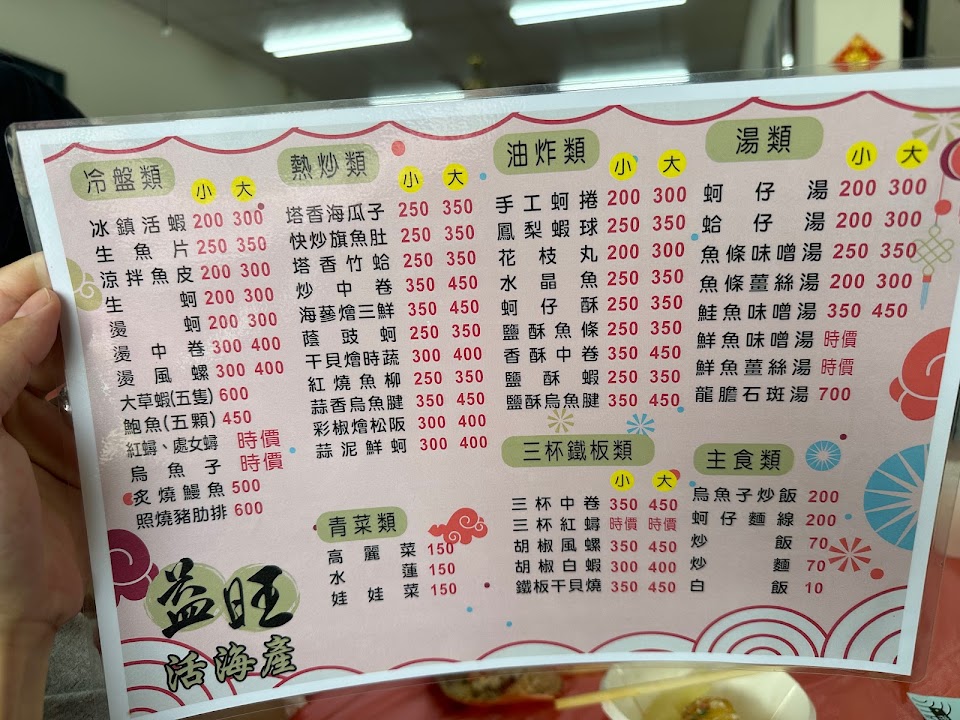 冷盤類
小 大
冰鎮活蝦 200 300
生魚片 250 350
涼拌魚皮 200 300
生蚵 200 300
燙蚵 200 300
燙中卷 300 400
燙風螺 300 400
大草蝦(五隻) 600
鮑魚(五顆) 450
紅蟳、處女蟳 時價
烏魚子 時價
炙燒鰻魚 500
照燒豬肋排 600
熱炒類
小 大
塔香海瓜子 250 350
快炒旗魚肚 250 350
塔香竹蛤 250 350
炒中卷 350 450
海蔘燴三鮮 350 450
蔭豉蚵 250 350
干貝燴時蔬 300 400
紅燒魚柳 250 350
蒜香烏魚腱 350 450
彩椒燴松阪 300 400
蒜泥鮮蚵 300 400
青菜類
高麗菜 150
水蓮 150
娃娃菜 150
油炸類
小 大
手工蚵捲 200 300
鳳梨蝦球 250 350
花枝丸 200 300
水晶魚 250 350
蚵仔酥 250 350
鹽酥魚條 250 350
香酥中卷 350 450
鹽酥蝦 250 350
鹽酥烏魚腱 350 450
三杯鐵板類
小 大
三杯中卷 350 450
三杯紅蟳 時價 時價
胡椒風螺 350 450
胡椒白蝦 300 400
鐵板干貝燒 350 450
湯類
小 大
蚵仔湯 200 300
蛤仔湯 200 300
魚條味噌湯 250 350
魚條薑絲湯 200 300
鮭魚味噌湯 350 450
鮮魚味噌湯 時價
鮮魚薑絲湯 時價
龍膽石斑湯 700
主食類
烏魚子炒飯 200
蚵仔麵線 200
炒飯 70
炒麵 70
白飯 10
益旺
活海產